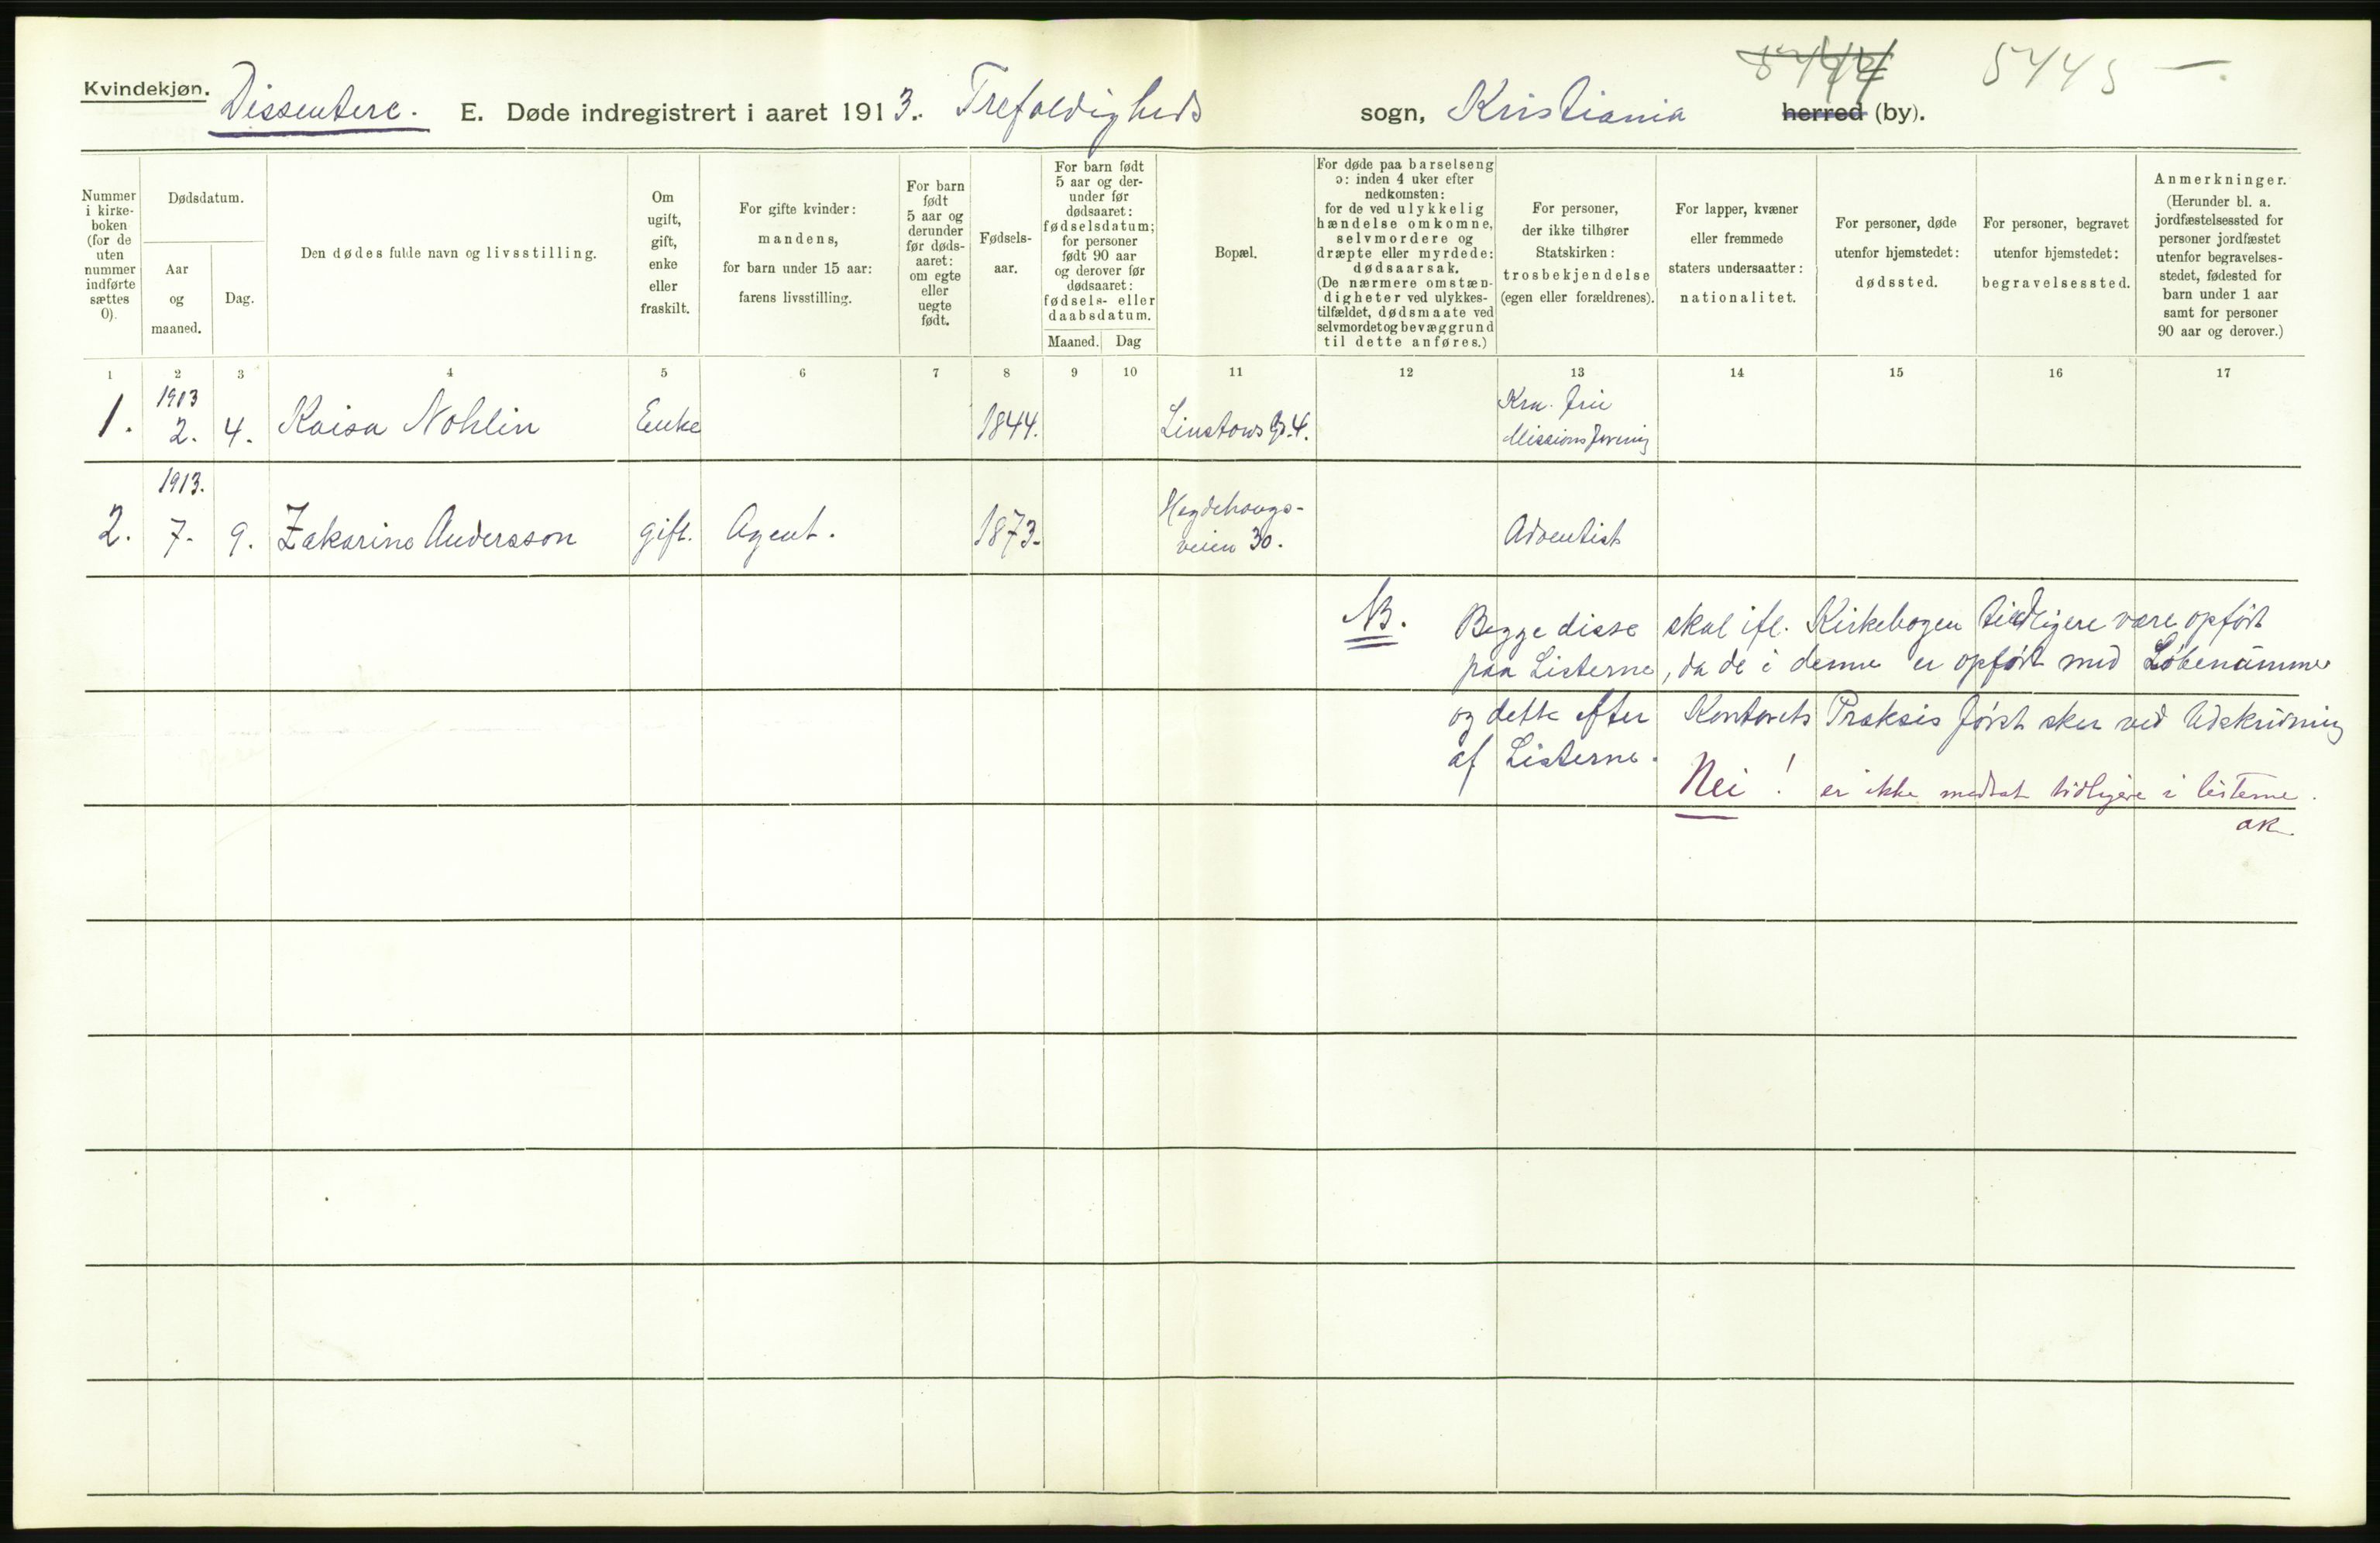 Kvindekjøn.
Dissentere.
E. Døde indregistrert i aaret 1913. Trefoldigheds sogn, Kristiania herred (by).
5445 —.
Nummer i kirke-boken (for de uten nummer indførte sættes 0).
Dødsdatum.
Aar og maaned.
Dag.
Den dødes fulde navn og livsstilling.
Om ugift, gift, enke eller fraskilt.
For gifte kvinder: mandens, for barn under 15 aar: farens livsstilling.
For barn født 5 aar og derunder før døds-aaret: om egte eller uegte født.
Fødsels-aar.
For barn født 5 aar og der-under før dødsaaret: fødselsdatum; for personer født 90 aar og derover før dødsaaret: fødsels- eller daabsdatum.
Maaned. Dag
Bopæl.
For døde paa barselseng ɔ: inden 4 uker efter nedkomsten: for de ved ulykkelig hændelse omkomne, selvmordere og dræpte eller myrdede: dødsaarsak. (De nærmere omstæn-digheter ved ulykkes-tilfældet, dødsmaate ved selvmordet og bevæggrund til dette anføres.)
For personer, der ikke tilhører Statskirken: trosbekjendelse (egen eller forældrenes).
For lapper, kvæner eller fremmede staters undersaatter: nationalitet.
For personer, døde utenfor hjemstedet: dødssted.
For personer, begravet utenfor hjemstedet: begravelsessted.
Anmerkninger. (Herunder bl. a. jordfæstelsessted for personer jordfæstet utenfor begravelses-stedet, fødested for barn under 1 aar samt for personer 90 aar og derover.)
1 2 3 4 5 6 7 8 9 10 11 12 13 14 15 16 17
1. 1913 2. 4. Kaisa Nohlin Enke 1844. Linstows G. 4. Kra. frie Missionsforening
2. 1913. 7. 9. Zakarine Andersson gift. Agent. 1873. Hegdehaugs-veien 30. Adventist
NB. Begge disse skal ifl. Kirkebogen tidligere være opført
paa Listerne, da de i denne er opført med Løbenummer
og dette efter Kontorets Praksis først sker ved Udskrivning
af Listerne.
Nei! er ikke medtat tidligere i listerne.
ak.